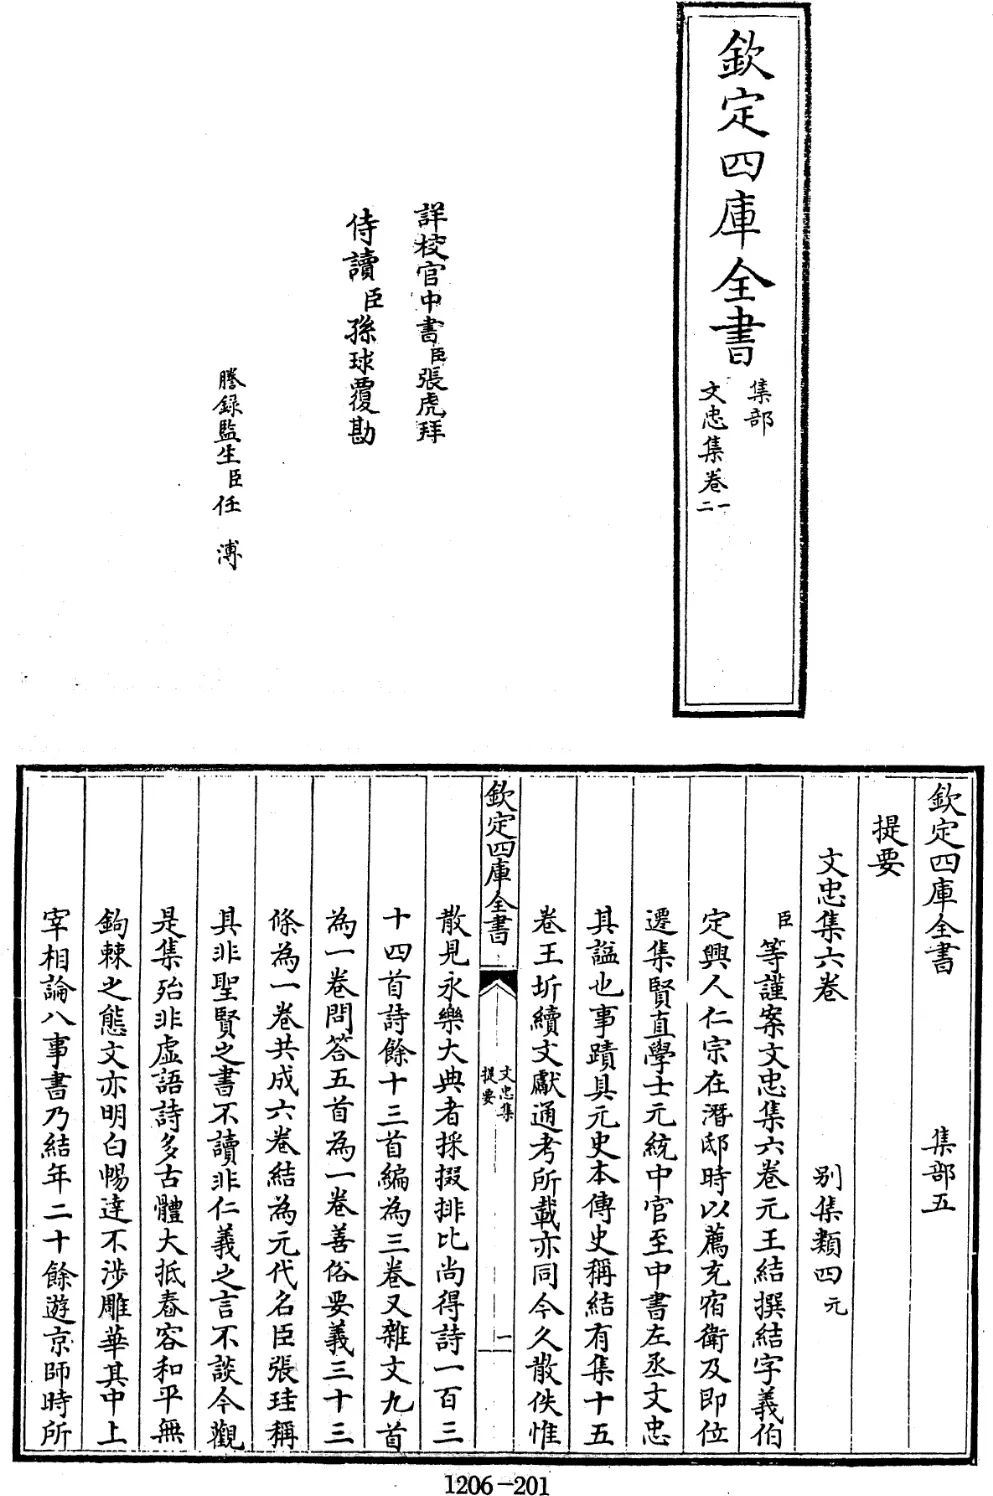 欽定四庫全書
集部
文忠集卷一
二
詳校官中書臣張虎拜
侍讀臣孫球覆勘
謄録監生臣任溥
欽定四庫全書 集部五
提要
文忠集六卷 别集類四元
臣等謹案文忠集六卷元王結撰結字義伯
定興人仁宗在潛邸時以薦充宿衛及即位
遷集賢直學士元統中官至中書左丞文忠
其諡也事蹟具元史本傳史稱結有集十五
卷王圻續文獻通考所載亦同今久散佚惟
欽定四庫全書
文忠集
提要
一
散見永樂大典者採掇排比尚得詩一百三
十四首詩餘十三首編為三卷又雜文九首
為一卷問答五首為一卷善俗要義三十三
條為一卷共成六卷結為元代名臣張珪稱
其非聖賢之書不讀非仁義之言不談今觀
是集殆非虛語詩多古體大抵舂容和平無
鉤棘之態文亦明白暢達不涉雕華其中上
宰相論八事書乃結年二十餘遊京師時所
1206-201